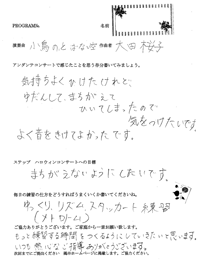 PROGRAMNo.
名前
演奏曲 小鳥のとぶ大空 作曲者 大田 桜子
アンダンテコンサートで感じたことを思う存分書いてみましょう。
気持ちよくひけたけれど、
ゆだんして、まちがえて
ひいてしまったので
気をつけたいです。
よく音をきけてよかったです。
ステップ ハロウィンコンサートへの目標
まちがえないようにしたいです。
毎日の練習の仕方をどうすればうまくいくか書いてくださいね。
ゆっくり、リズム、スタッカート練習
(メトロノーム)
ご協力ありがとうございます。ご家庭から一言お願い致します。
もっと練習する時間をつくるようにしていきたいと思います。
いつも熱心なご指導ありがとうございます。